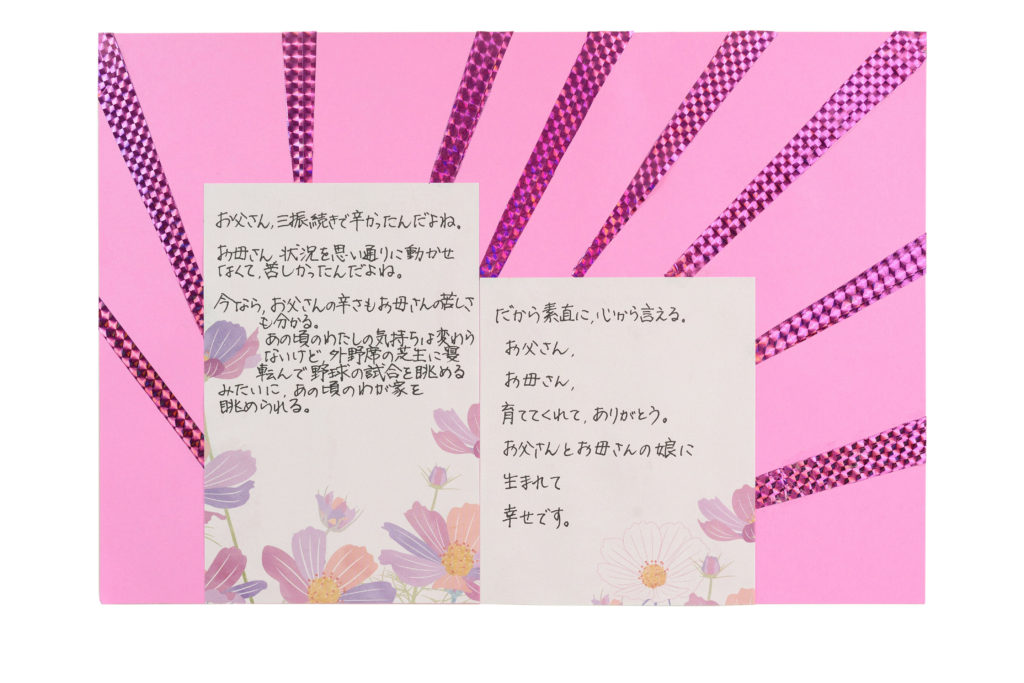 お父さん,三振続きで辛かったんだよね。
お母さん,状況を思い通りに動かせ
なくて,苦しかったんだよね。
今なら,お父さんの辛さもお母さんの苦しさ
も分かる。
あの頃のわたしの気持ちは変わら
ないけど,外野席の芝生に寝
転んで野球の試合を眺める
みたいに,あの頃のわが家を
眺められる。
だから素直に,心から言える。
お父さん,
お母さん,
育ててくれて,ありがとう。
お父さんとお母さんの娘に
生まれて
幸せです。